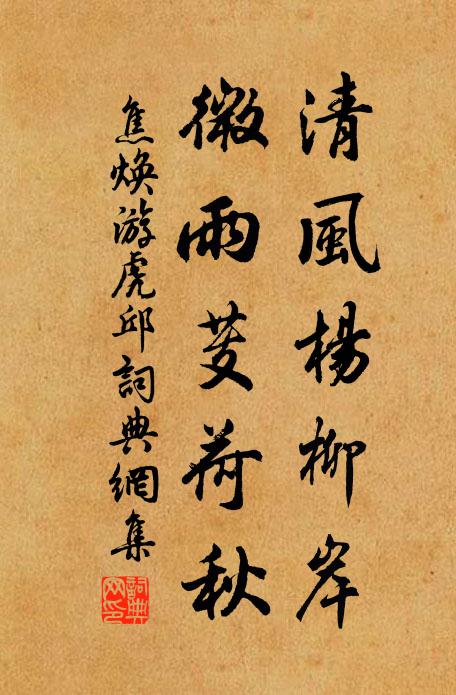 清風楊柳岸
微雨芰荷秋
焦煥游虎邱詞典網集
詞典网印